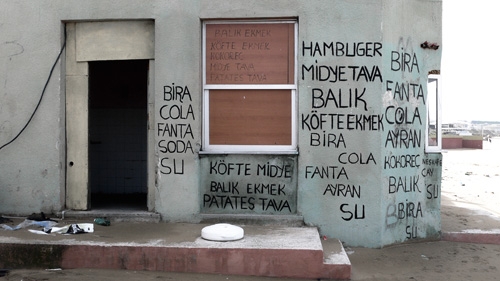 BİRA
COLA
FANTA
SODA
SU
BALIK EKMEK
KÖFTE EKMEK
KOKOREC
MİDYE TAVA
PATATES TAVA
KÖFTE MİDYE
BALIK EKMEK
PATATES TAVA
HAMBLIGER
MİDYE TAVA
BALIK
KÖFTE EKMEK
BİRA
COLA
FANTA
AYRAN
SU
BİRA
FANTA
COLA
AYRAN
KOKOREC
BALIK
BİRA
SU
ÇAY
SU